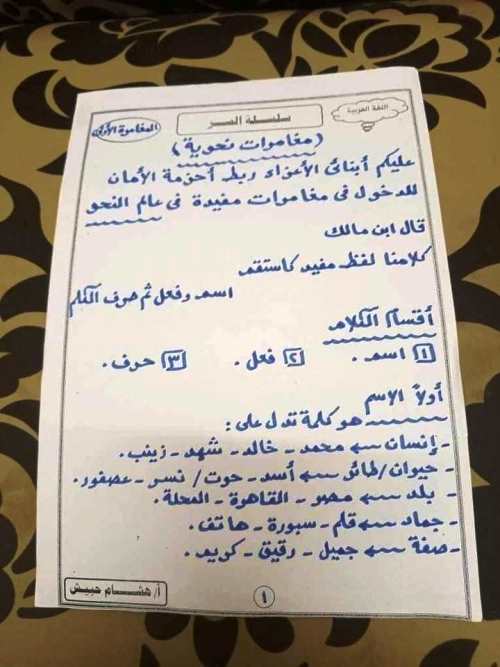 اللغة العربية
سلسلة السر
المغامرة الأولى
(مغامرات نحوية)
عليكم أبنائى الأعزاء ربط أحزمة الأمان
للدخول فى مغامرات مفيدة فى عالم النحو
قال ابن مالك
كلامنا لفظ مفيد كاستقم
اسم وفعل ثم حرف الكلم
أقسام الكلام
١ اسم . ٢ فعل . ٣ حرف .
أولاً الاسم
هو كلمة تدل على :
- إنسان ← محمد - خالد - شهد - زينب .
- حيوان / طائر ← أسد - حوت / نسر - عصفور .
- بلد ← مصر - القاهرة - المحلة .
- جماد ← قلم - سبورة - هاتف .
- صفة ← جميل - رقيق - كريم .
١
أ/ هشام حبيش